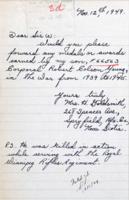 3d
Nov. 12th 1949.
Dear Sir,
Would you please
forward any medals or awards
earned by my son, F 66563
Corporal Robert Young,
in the War from 1939 to 1945.
Yours truly,
Mrs. R. Goldsmith,
267 Spencer Ave,
Nova Scotia.
P.S. He was killed in action
while serving with the Royal
Winnipeg Rifles Regiment.